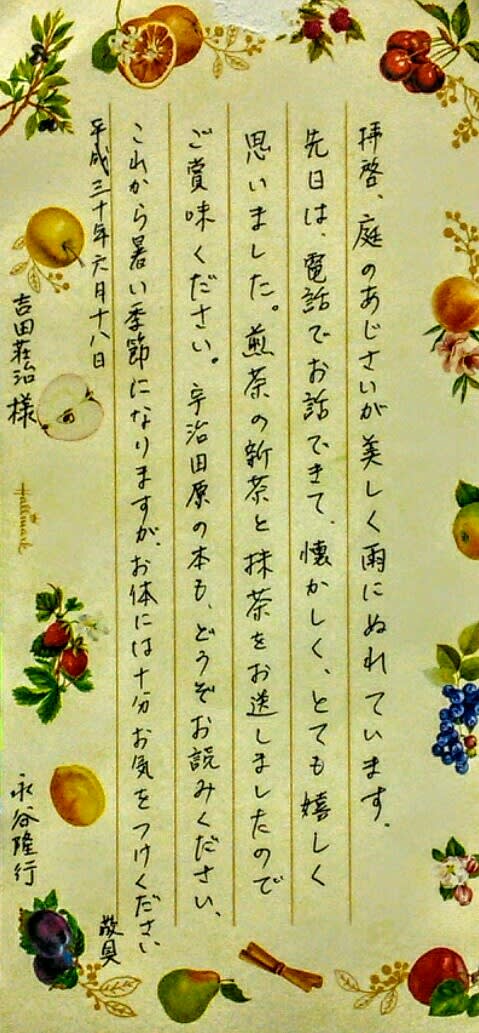 拝啓、庭のあじさいが美しく雨にぬれています。
先日は、電話でお話できて、懐かしく、とても嬉しく
思いました。煎茶の新茶と抹茶をお送しましたので
ご賞味ください。宇治田原の本も、どうぞお読みください、
これから暑い季節になりますが、お体には十分お気をつけください
敬具
平成三十年六月十八日
永谷隆行
吉田荘治様
Hallmark